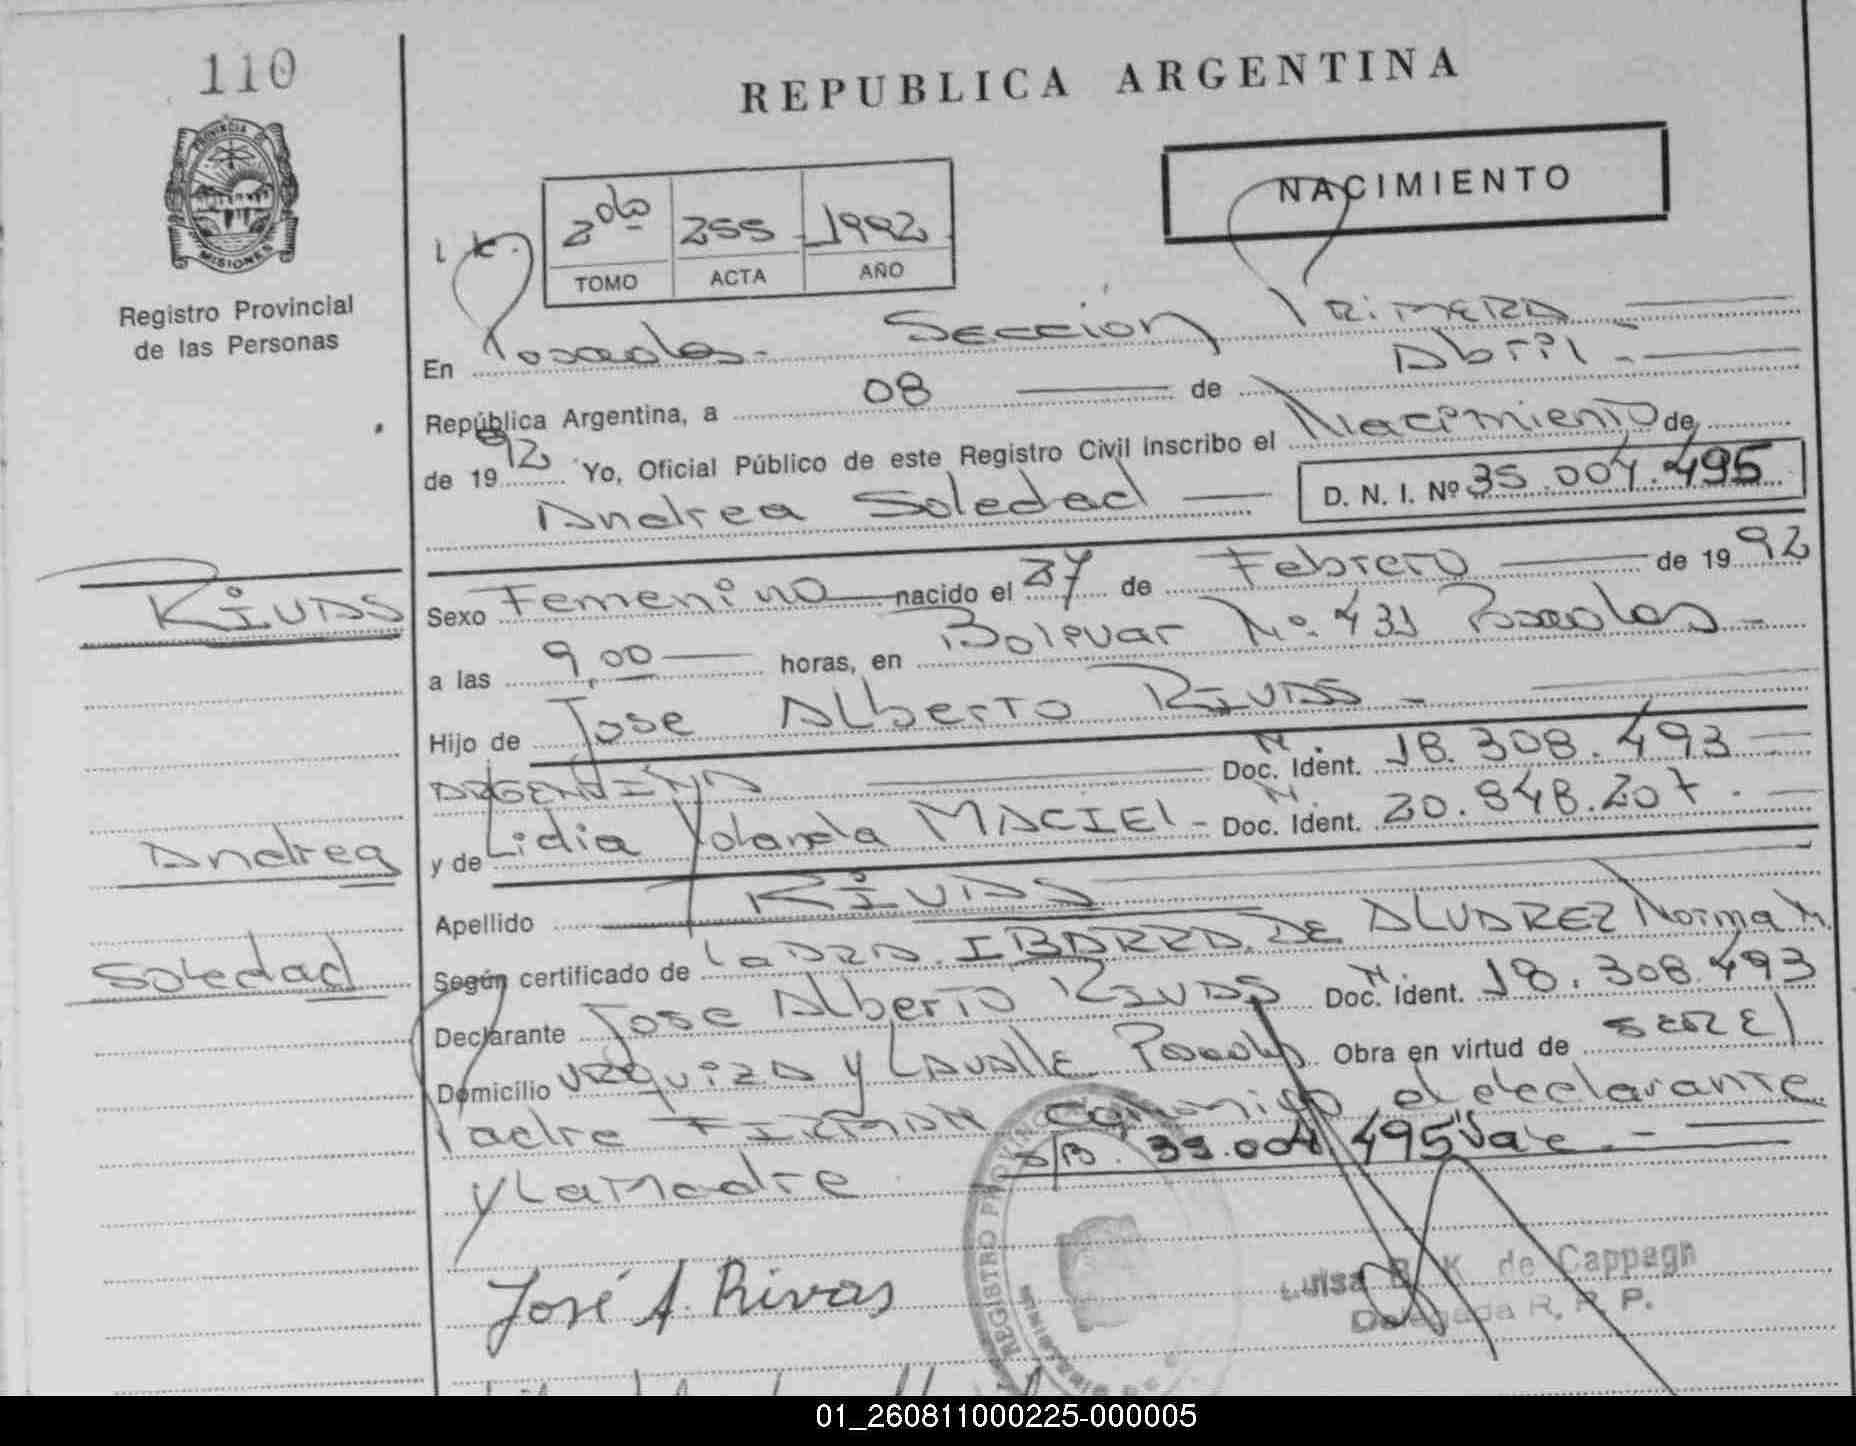 110
REPUBLICA ARGENTINA
PROVINCIA
MISIONES
NACIMIENTO
2do 255 1992
TOMO ACTA AÑO
Registro Provincial
de las Personas
En Posadas - Sección Primera
República Argentina, a 08 de Abril -
de 1992 Yo, Oficial Público de este Registro Civil inscribo el Nacimiento de
Andrea Soledad D. N. I. Nº 35.004.495
RIVAS
Sexo Femenino nacido el 27 de Febrero de 1992
a las 9,00 horas, en Bolivar Nº. 431 Posadas -
Hijo de Jose Alberto RIVAS -
ARGENTINA Doc. Ident. M. 18.308.493
y de Lidia Yolanda MACIEL - Doc. Ident. N. 20.848.207. -
Andrea
Apellido RIVAS
Soledad
Según certificado de La DRA. IBARRA DE ALVAREZ Norma M.
Declarante Jose Alberto RIVAS Doc. Ident. M. 18.308.493
Domicilio URQUIZA y LAVALLE Posadas Obra en virtud de SER El
Padre FIRMAN conmigo el declarante
y La Madre S/B. 35.004.495 Vale. -
REGISTRO PROVINCIAL
José A. Rivas
Luisa B. K. de Cappagn
Delegada R. P. P.
01_260811000225-000005